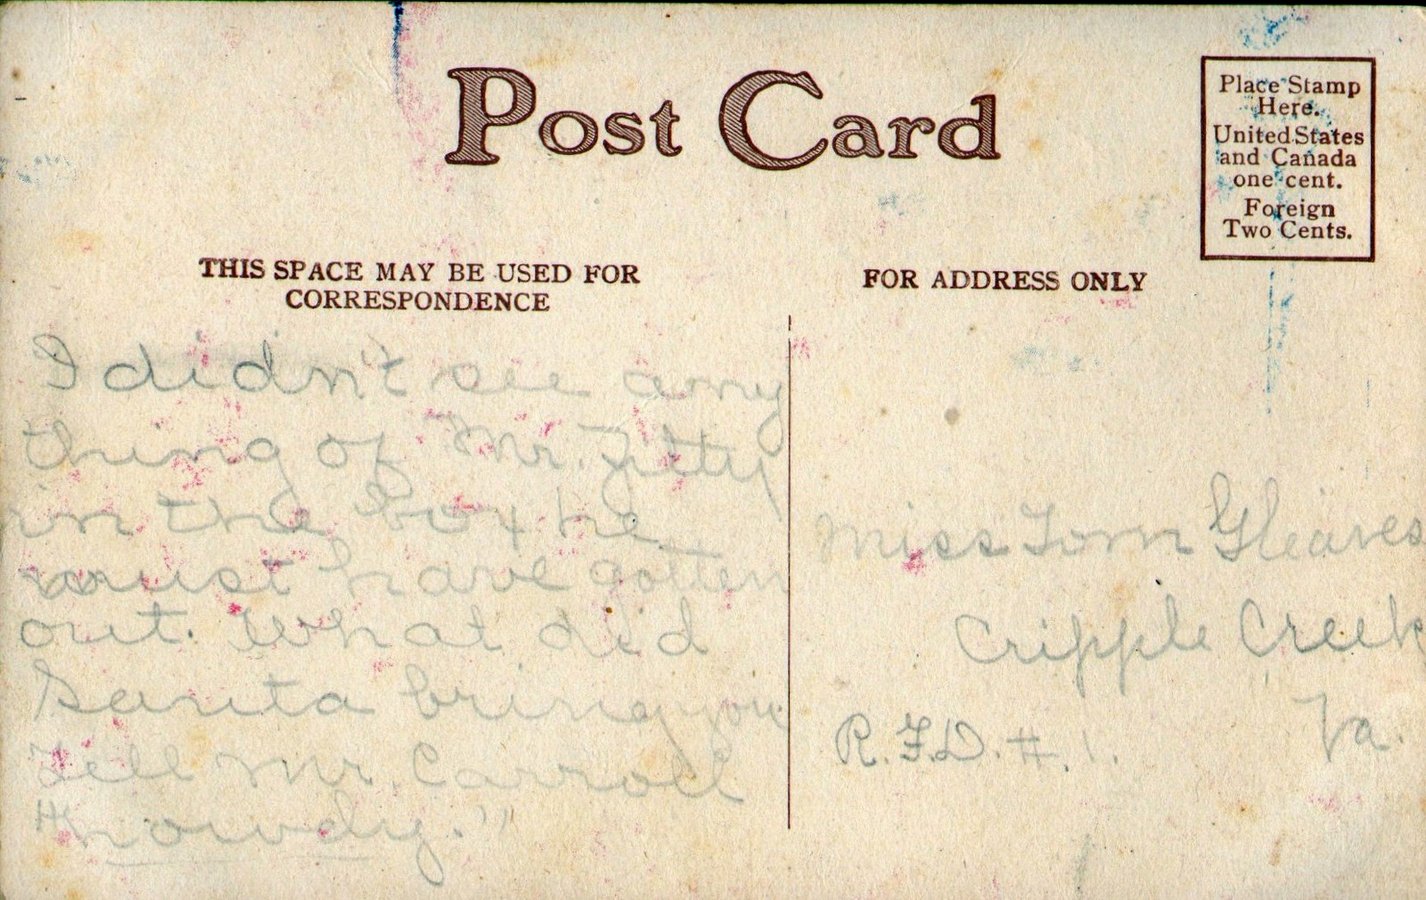 Post Card
Place Stamp
Here.
United States
and Canada
one cent.
Foreign
Two Cents.
THIS SPACE MAY BE USED FOR
CORRESPONDENCE
FOR ADDRESS ONLY
I didn't see any
thing of Mr.
in the box he
must have gotten
out. What did
Santa bring you
Tell Mr. Carroll
"howdy."
Miss Tom Gleaves
Cripple Creek
Va.
R.F.D. #. 1.